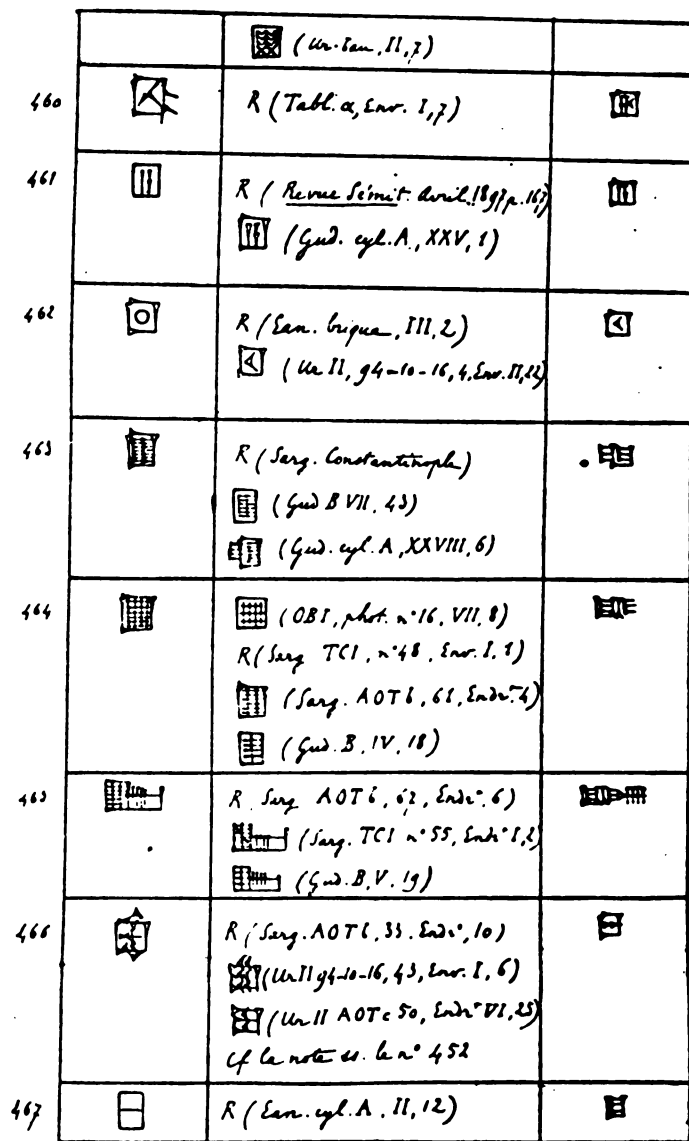 (Ur-Bau, II, 7)
460 R (Tabl. α, Env. I, 7)
461 R (Revue Sémit. Avril 1897 p. 167)
(Gud. cyl. A, XXV, 1)
462 R (Ean. brique, III, 2)
(Ur II, 94-10-16, 4, Env. II, 22)
463 R (Sarg. Constantinople)
(Gud B VII, 43)
(Gud. cyl. A, XXVIII, 6)
464 (OBI, phot. n° 16, VII, 8)
R (Sarg TCI, n° 48, Env. I, 1)
(Sarg. AOTb, 61, Endr. 4)
(Gud. B, IV, 18)
465 R Sarg AOTb, 62, Endr°, 6)
(Sarg. TCI n° 55, Endr° I, 2)
(Gud. B, V. 19)
466 R (Sarg. AOTb, 33. Endr°, 10)
(Ur II 94-10-16, 43, Env. I, 6)
(Ur II AOTc 50, Endr° VI, 25)
cf la note ss. le n° 452
467 R (Ean. cyl. A, II, 12)